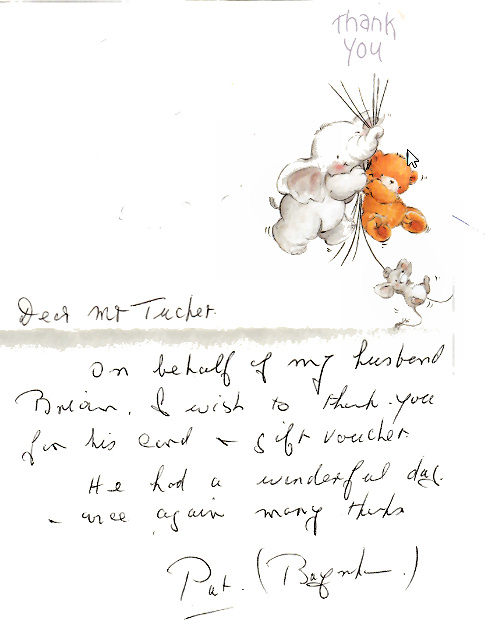 Thank
You
Dear Mr Tucker.
On behalf of my husband
Brian, I wish to thank you
for his card & gift voucher.
He had a wonderful day.
- once again many thanks
Pat.